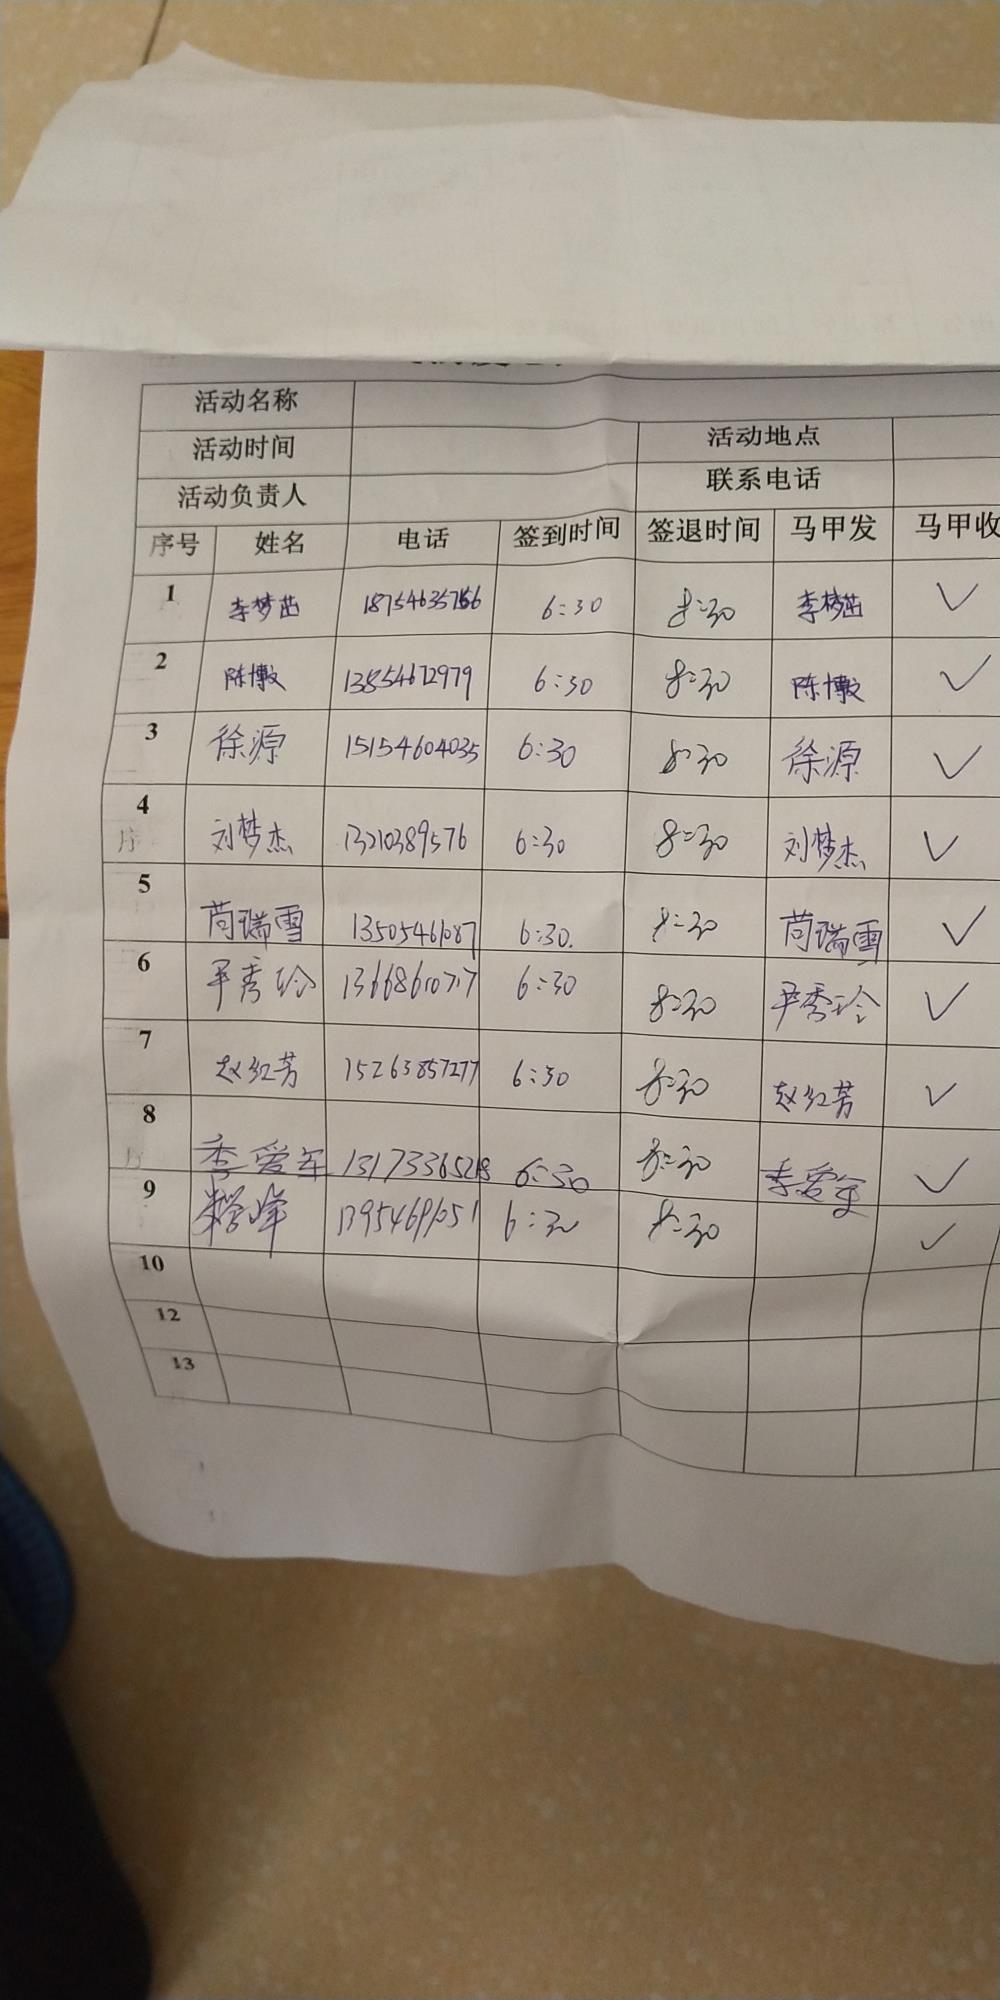 活动名称
活动时间 活动地点
活动负责人 联系电话
序号 姓名 电话 签到时间 签退时间 马甲发 马甲收
1 李梦茁 6:30 8:30 李梦茁 ✓
2 陈博文 13854672979 6:30 8:30 陈博文 ✓
3 徐源 15154604035 6:30 8:30 徐源 ✓
4 刘梦杰 13210389576 6:30 8:30 刘梦杰 ✓
5 苘瑞雪 13505461087 6:30. 8:30 苘瑞雪 ✓
6 尹秀玲 13668610717 6:30 8:30 尹秀玲 ✓
7 赵红芳 15263857277 6:30 8:30 赵红芳 ✓
8 季爱军 13173365218 6:30 8:30 季爱军 ✓
9 13954691051 6:30 8:30 ✓
10
12
13